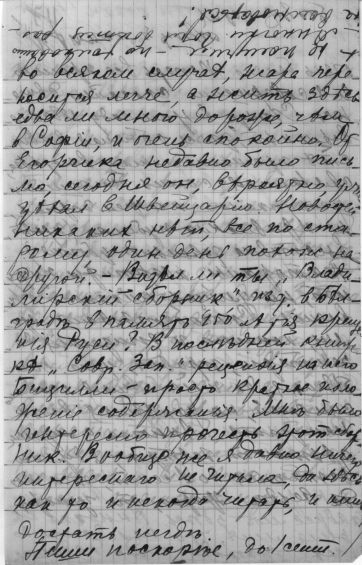 во всяком случае, жара пере
носится легче, а жить здесь
едва ли много дороже, чем
в Софии, и очень спокойно. От
Егорчика недавно было пись
мо, сегодня он, вероятно у
ехал в Швейцарию. Новостей
никаких нет, все по ста
рому, один день похож на
другой. – Видел ли ты „Влади
мирский сборник" изд. в Бел
граде в память 950 летия креще
ния Руси? В последней книж
ке „Совр. Зап." рецензия на него
Бицилли – просто краткое изло
жение содержания. Мне было
интересно прочесть этот сбор
ник. Вообще же я давно ничего
интересного не читала, да здесь
как то и некогда читать, и книг
достать негде.
Пиши поскорее, до 1 сент.